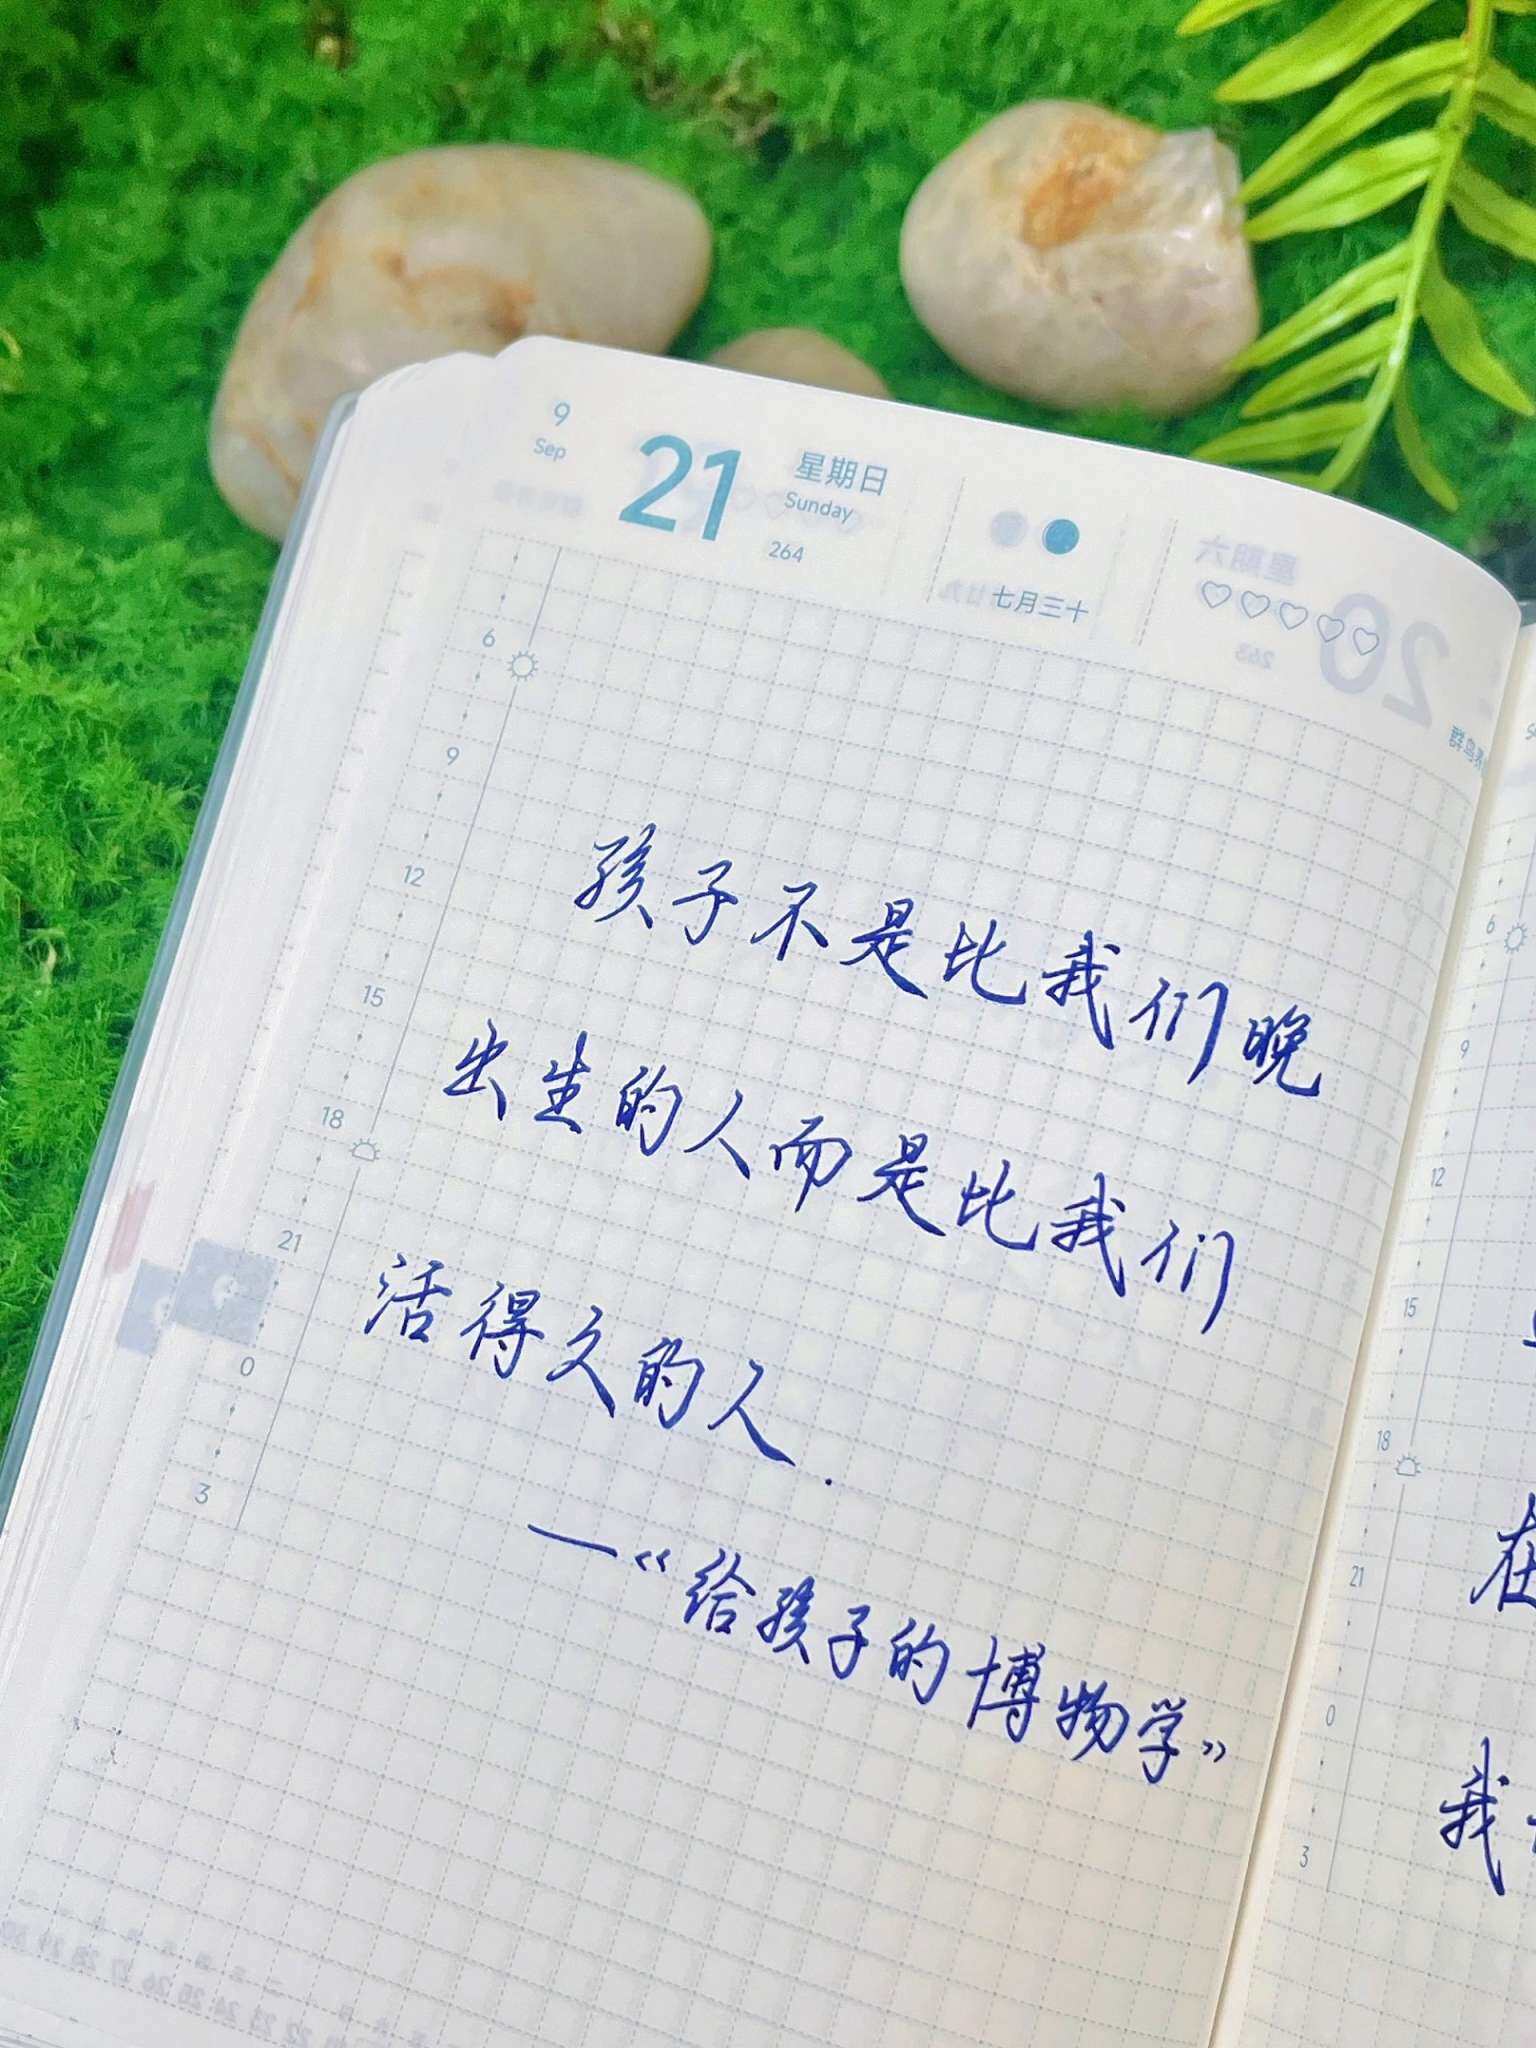 9
Sep
21
星期日
Sunday
264
七月三十
♡♡♡♡♡
6
9
12
15
18
21
0
3
孩子不是比我们晚
出生的人而是比我们
活得久的人.
—《给孩子的博物学》
6
9
12
15
18
21
0
3
在
我